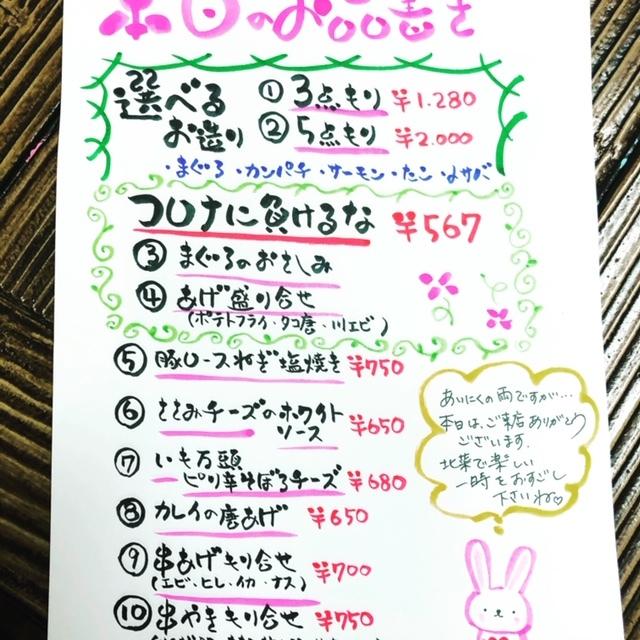 本日のお品書き
選べる
お造り
① 3点もり ¥1.280
② 5点もり ¥2.000
・まぐろ・カンパチ・サーモン・たこ・〆サバ
コロナに負けるな ¥567
③ まぐろのおさしみ
④ あげ盛り合せ
(ポテトフライ・タコ唐・川エビ)
⑤ 豚ロースねぎ塩焼き ¥750
⑥ ささみチーズのホワイト
ソース ¥650
⑦ いも万頭
ピリ辛そぼろチーズ ¥680
⑧ カレイの唐あげ ¥650
⑨ 串あげもり合せ ¥700
(エビ・ヒレ・イカ・ナス)
⑩ 串やきもり合せ ¥750
あいにくの雨ですが…
本日は、ご来店ありがとう
ございます。
北菜で楽しい
一時をおすごし
下さいね♡